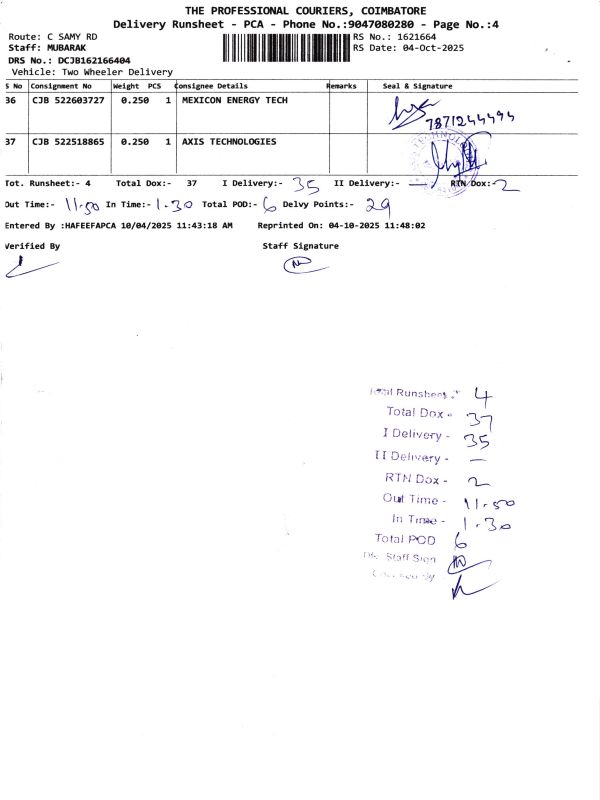 THE PROFESSIONAL COURIERS, COIMBATORE
Delivery Runsheet - PCA - Phone No.:9047080280 - Page No.:4
Route: C SAMY RD RS No.: 1621664
Staff: MUBARAK RS Date: 04-Oct-2025
DRS No.: DCJB162166404
Vehicle: Two Wheeler Delivery
S No Consignment No Weight PCS Consignee Details Remarks Seal & Signature
36 CJB 522603727 0.250 1 MEXICON ENERGY TECH
7871244494
37 CJB 522518865 0.250 1 AXIS TECHNOLOGIES
Tot. Runsheet:- 4 Total Dox:- 37 I Delivery:- 35 II Delivery:- — RTN Dox:- 2
Out Time:- 11.50 In Time:- 1.30 Total POD:- 6 Delvy Points:- 29
Entered By :HAFEEFAPCA 10/04/2025 11:43:18 AM Reprinted On: 04-10-2025 11:48:02
Verified By Staff Signature
Total Runsheet - 4
Total Dox - 37
I Delivery - 35
II Delivery - —
RTN Dox - 2
Out Time - 11.50
In Time - 1.30
Total POD 6
Staff Sign